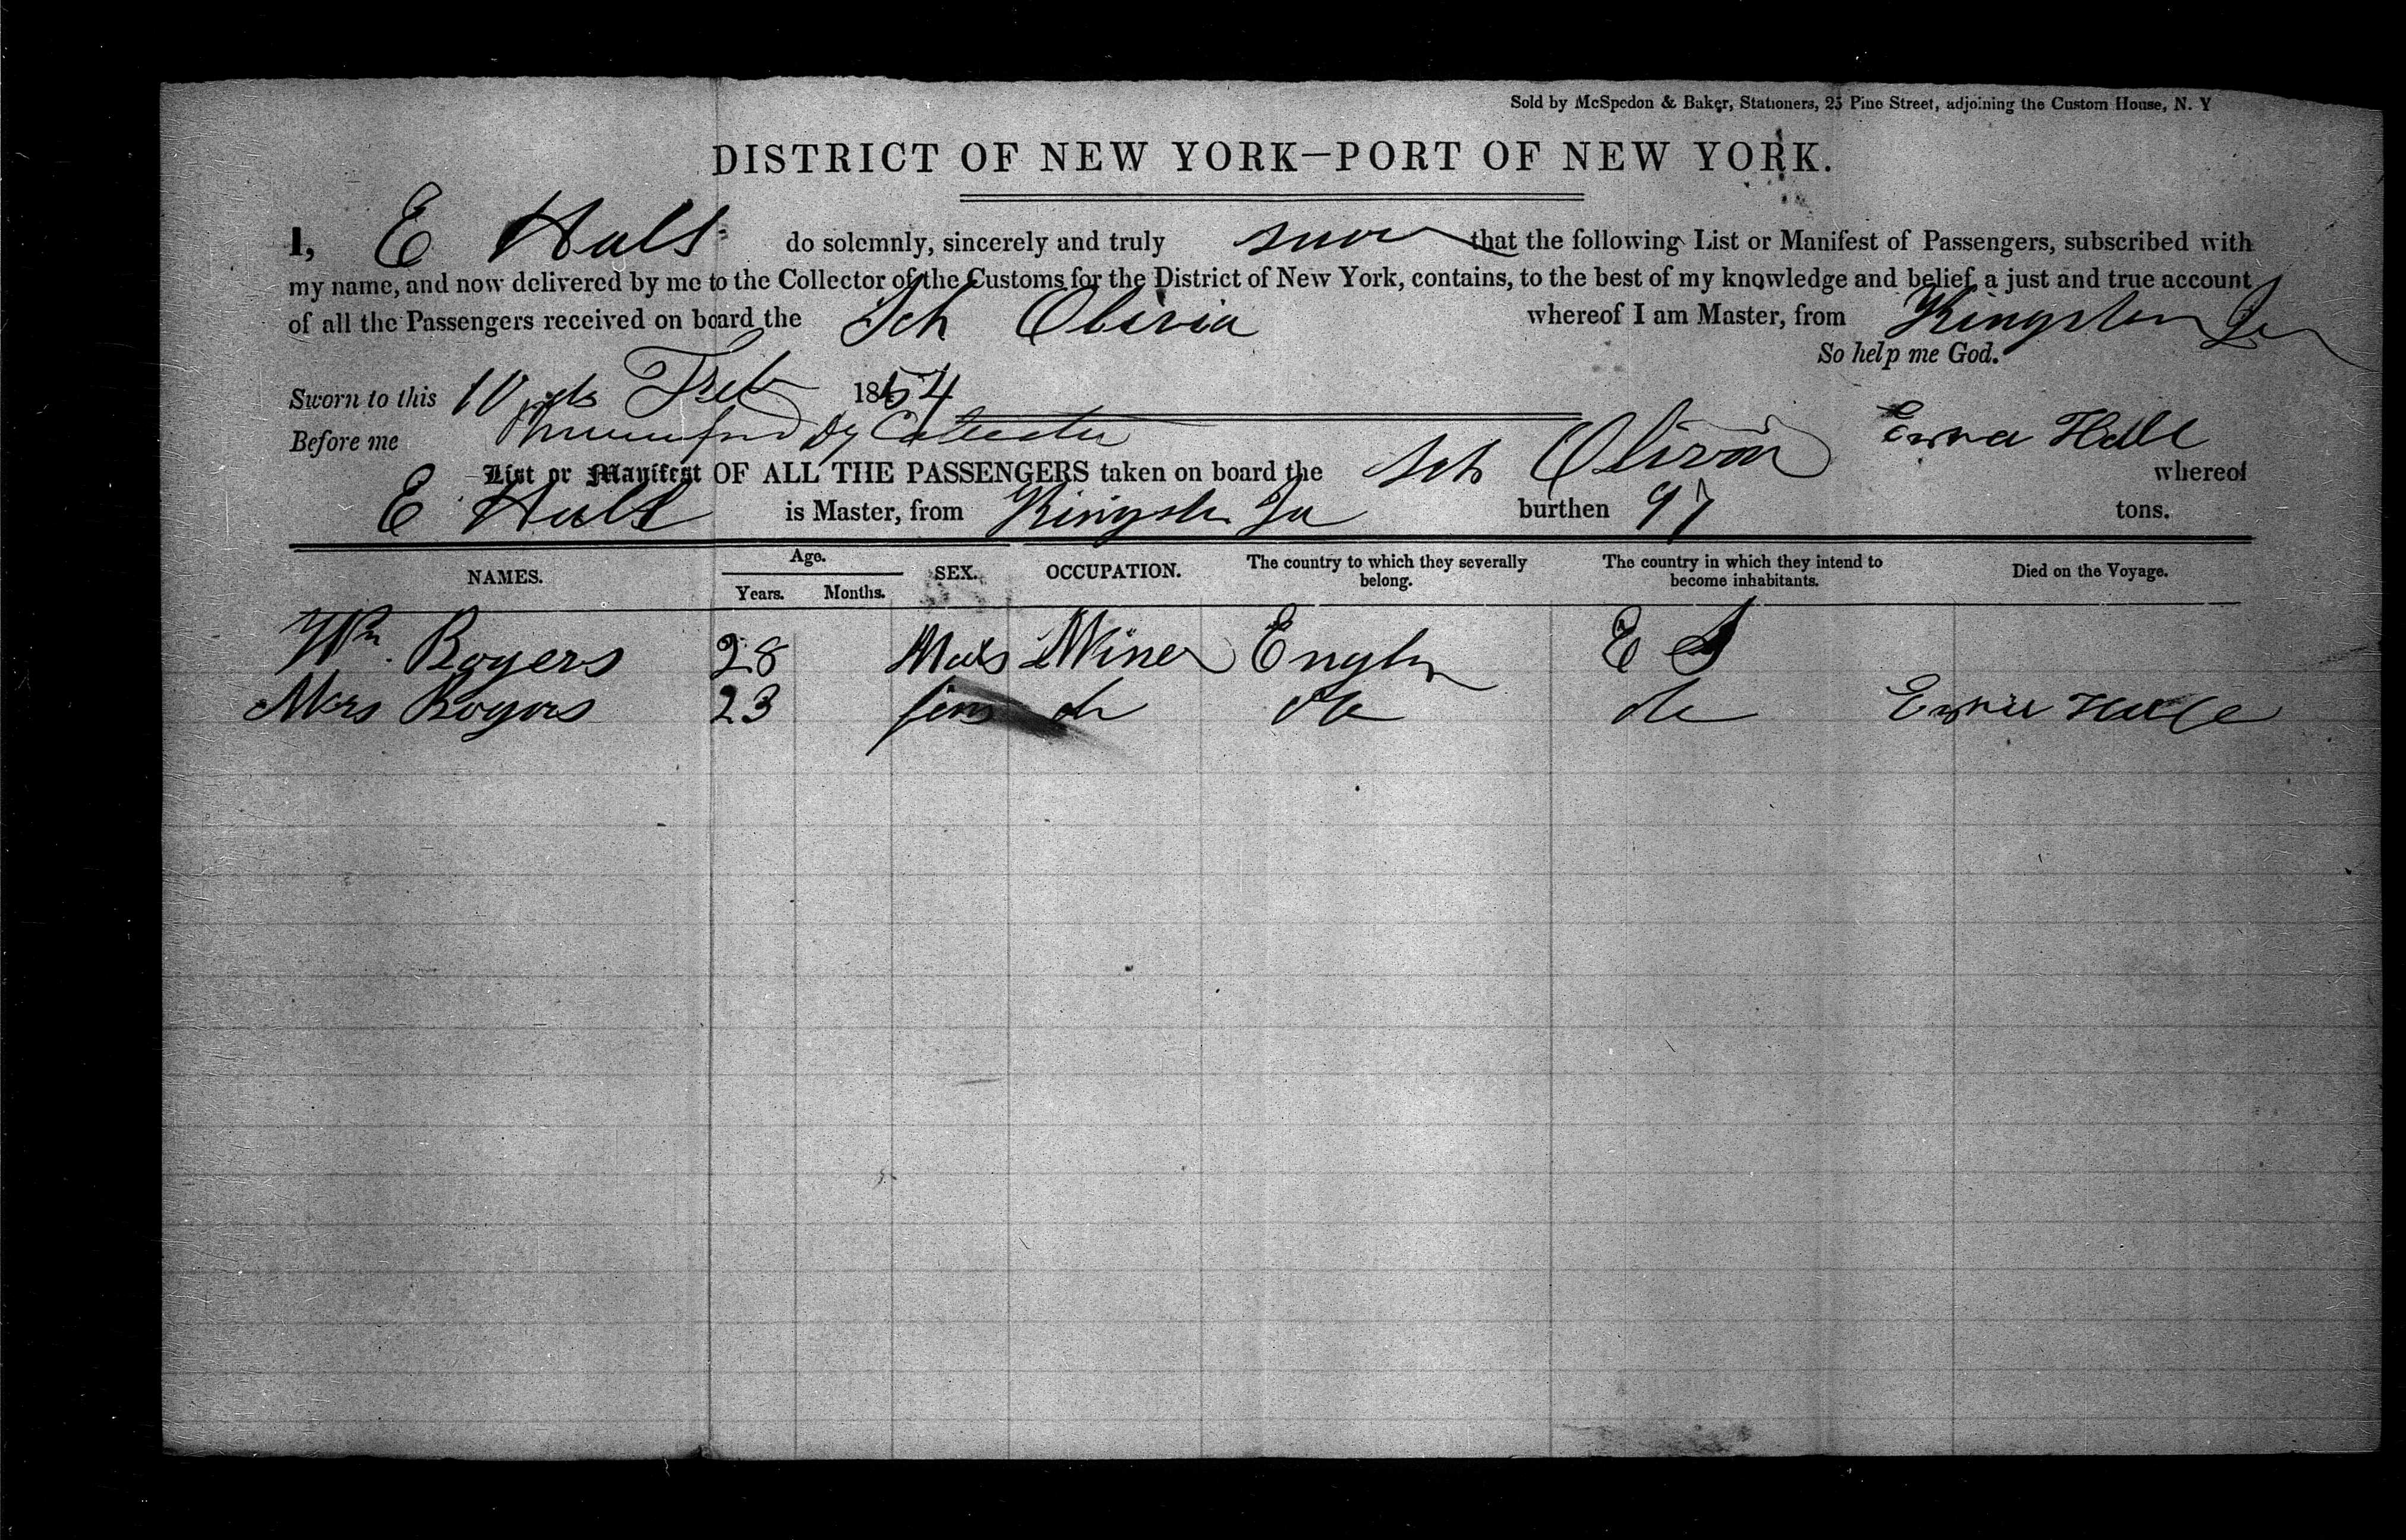 Sold by McSpedon & Baker, Stationers, 25 Pine Street, adjoining the Custom House, N. Y
DISTRICT OF NEW YORK—PORT OF NEW YORK.
I, E Hall do solemnly, sincerely and truly swear that the following List or Manifest of Passengers, subscribed with
my name, and now delivered by me to the Collector of the Customs for the District of New York, contains, to the best of my knowledge and belief, a just and true account
of all the Passengers received on board the Sch Olivia whereof I am Master, from Kingston Ja
So help me God.
Sworn to this 10 Feb 1854
Before me Dy Collector Ezra Hall
List or Manifest OF ALL THE PASSENGERS taken on board the Sch Olivia whereof
E Hall is Master, from Kingston Ja burthen 97 tons.
NAMES. Age. Years. Months. SEX. OCCUPATION. The country to which they severally belong. The country in which they intend to become inhabitants. Died on the Voyage.
Wm Rogers 28 Male Miner England
Mrs Rogers 23 fem do do do Ezra Hall